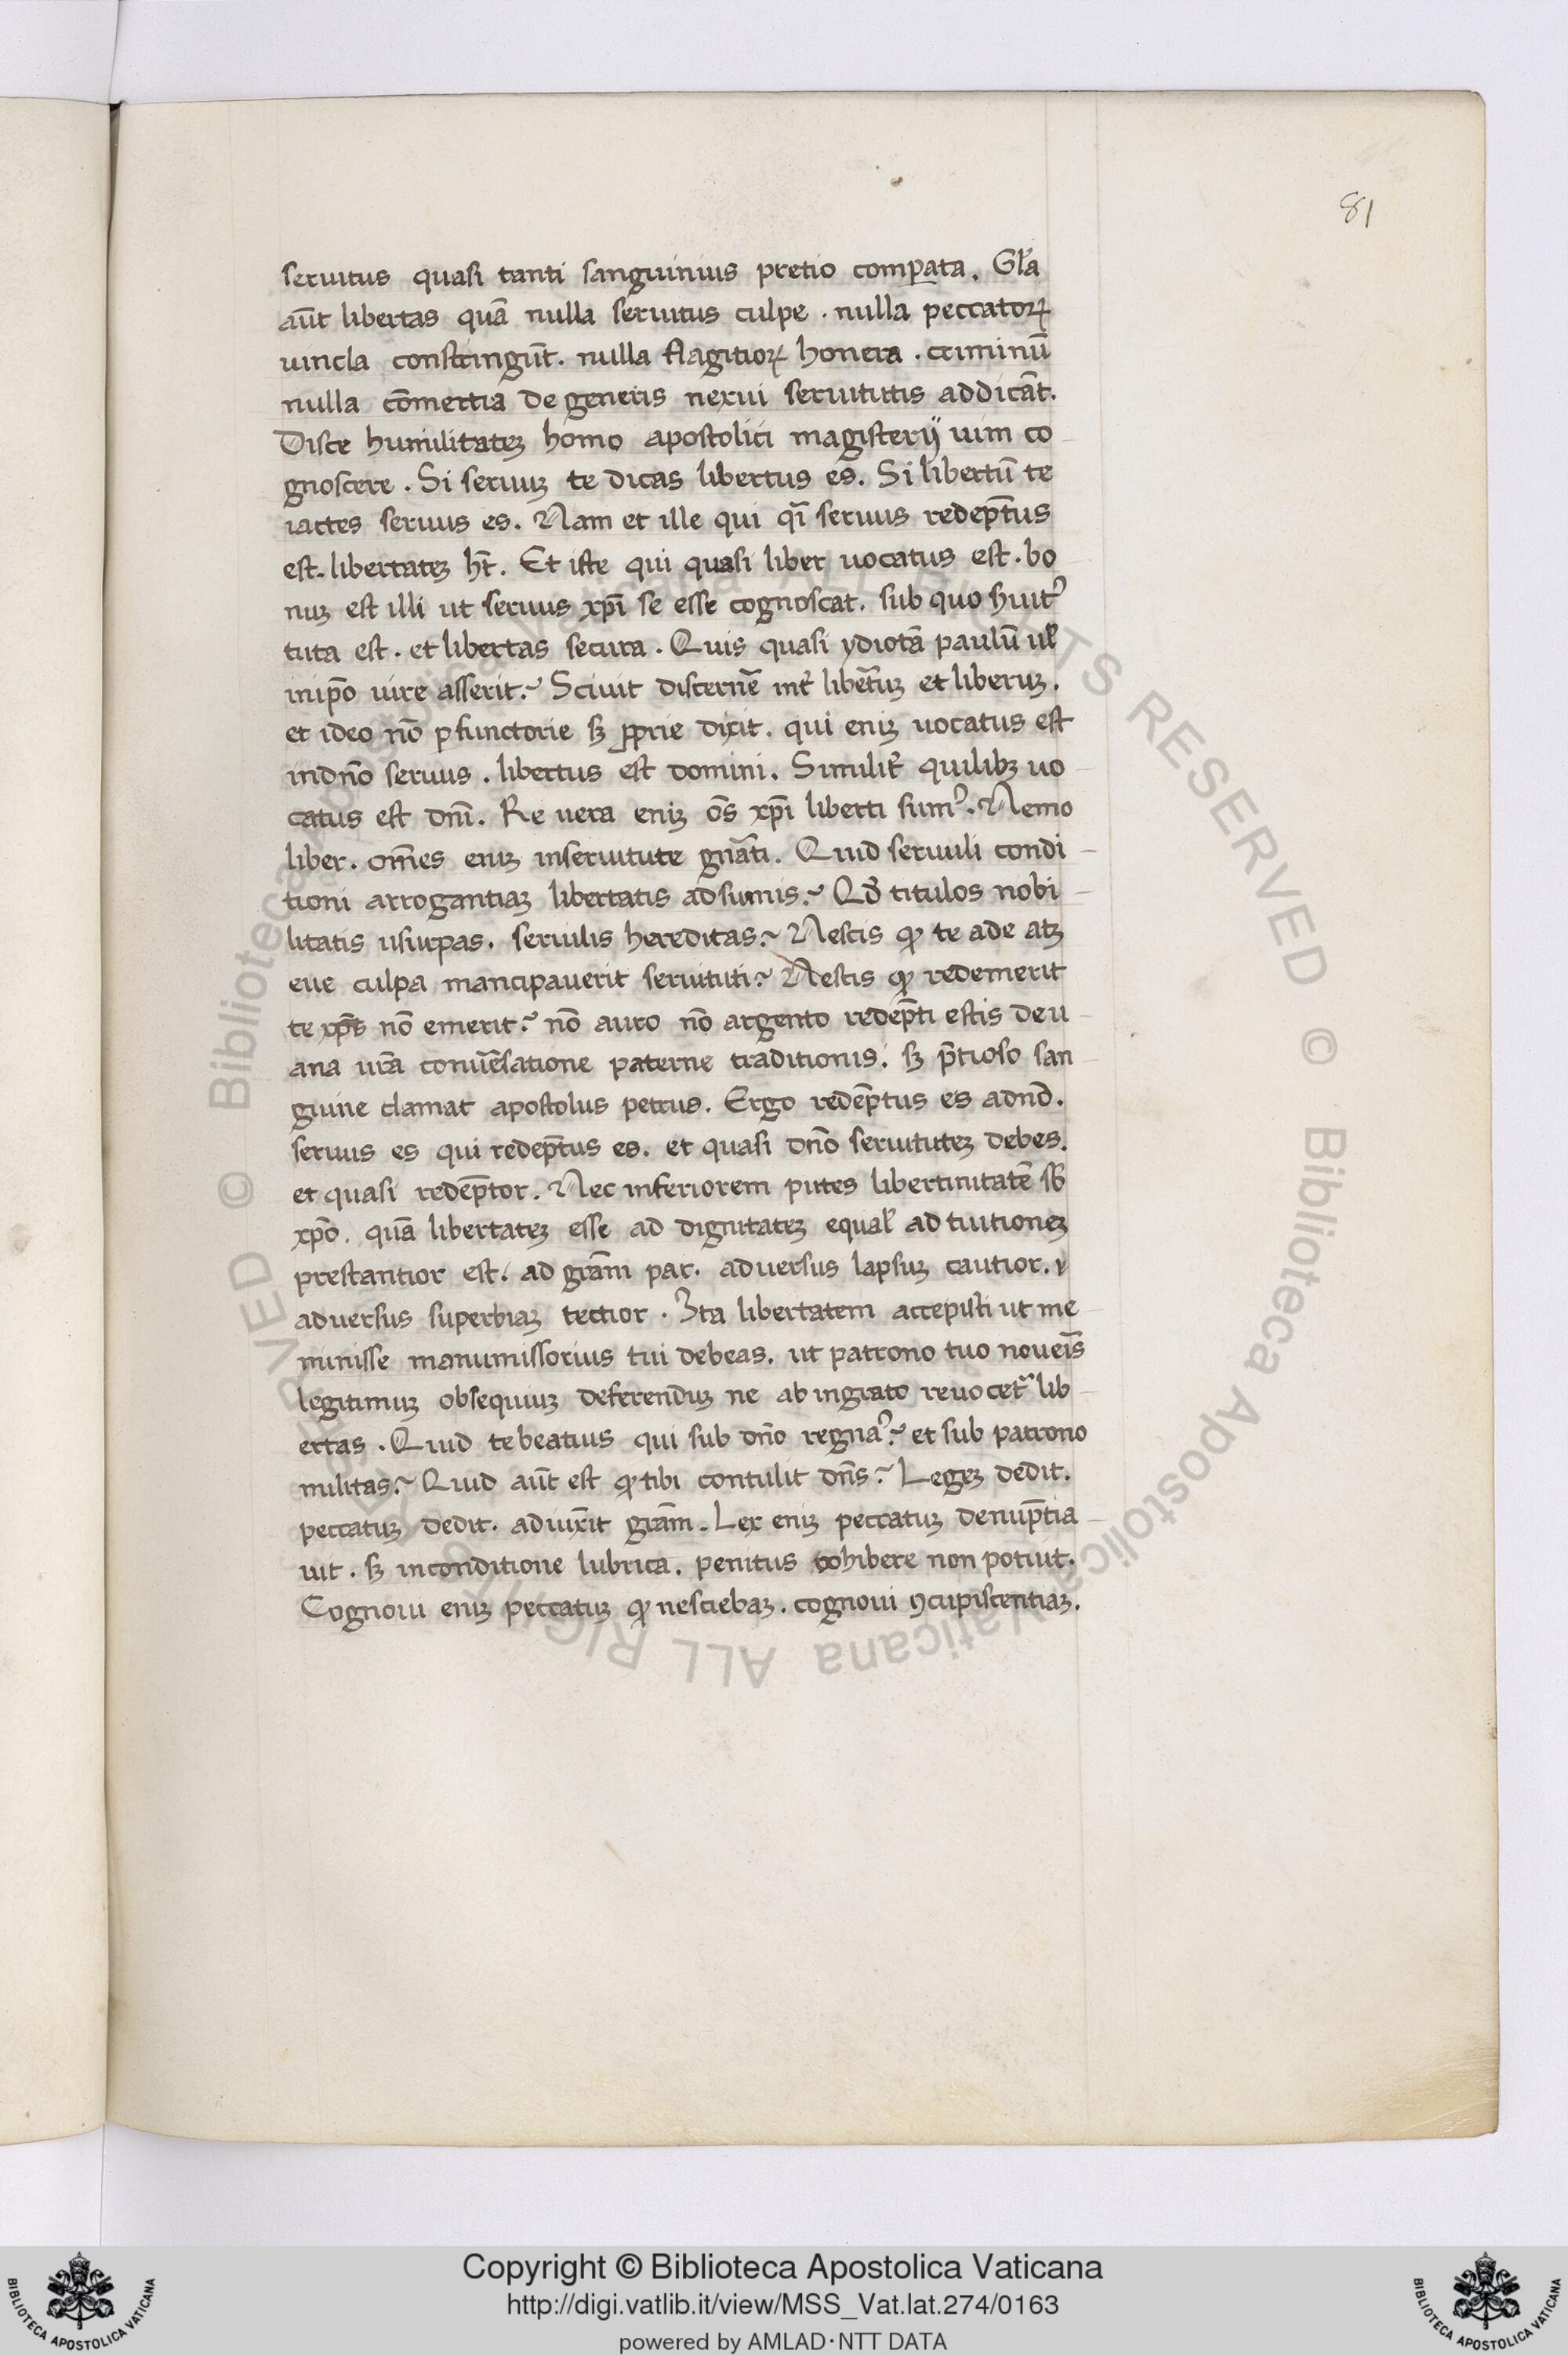 81
seruitus quasi tanti sanguinius pretio comꝑata. Gl̃a
aũt libertas quã nulla seruitus culpe . nulla peccatoꝝ
uincla constringũt. nulla flagitioꝝ honera . criminũ
nulla cõmertia de generis nexui seruitutis addicãt.
Disce humilitateꝫ homo apostolici magisterij uim co
gnoscere . Si seruuꝫ te dicas libertus es. Si libertũ te
iactes seruus es. Nam et ille qui qĩ seruus redep̃tus
est. libertateꝫ ht̃. Et iste qui quasi liber uocatus est. bo
nuꝫ est illi ut seruus xp̃i se esse cognoscat. sub quo s̃uitꝰ
tuta est. et libertas secura. Quis quasi ydiotã paulũ ul̃
inip̃o iure asserit? Sciuit discernẽ int̃ libẽtuꝫ et liberuꝫ.
et ideo nõ ꝑfunctorie sꝫ ꝓprie dixit. qui eniꝫ uocatus est
indño seruus . libertus est domini. Similit̃ quilibꝫ uo
catus est dñi. Re uera eniꝫ õs xp̃i liberti sumꝰ. Nemo
liber. om̃es eniꝫ inseruitute gñati. Quid seruili condi
tioni arrogantiaꝫ libertatis adsumis? Qd̃ titulos nobi
litatis usurpas. seruilis hereditas? Nescis ꝙ te ade atꝫ
eue culpa mancipauerit seruituti? Nescis ꝙ redemerit
te xp̃s nõ emerit? nõ auro nõ argento redẽpti estis deu
ana ur̃a conuẽsatione paterne traditionis. sꝫ p̃tioso san
guine clamat apostolus petrus. Ergo redẽptus es adnd̃.
seruus es qui redep̃tus es. et quasi dño seruituteꝫ debes.
et quasi redẽptor. Nec inferiorem putes libertinitatẽ sb̃
xp̃o. quã libertateꝫ esse ad dignitateꝫ equal̃ ad tuitioneꝫ
prestantior est. ad gr̃am par. aduersus lapsuꝫ cautior.
aduersus superbiaꝫ tectior . Ita libertatem accepisti ut me
minisse manumissorius tui debeas. ut patrono tuo noueĩs
legitimuꝫ obsequiuꝫ deferenduꝫ ne ab ingrato reuocet̃ lib
ertas . Quid te beatius qui sub dño regnaꝰ? et sub patrono
militas? Quid aũt est ꝙ tibi contulit dñs? Legeꝫ dedit.
peccatuꝫ dedit. aduix̃it gr̃am. Lex eniꝫ peccatuꝫ denũptia
uit. sꝫ inconditione lubrica. penitus cohibere non potuit.
Cognoui eniꝫ peccatuꝫ ꝙ nesciebaꝫ. cognoui ꝯcupiscentiaꝫ.
Copyright © Biblioteca Apostolica Vaticana
http://digi.vatlib.it/view/MSS_Vat.lat.274/0163
powered by AMLAD·NTT DATA